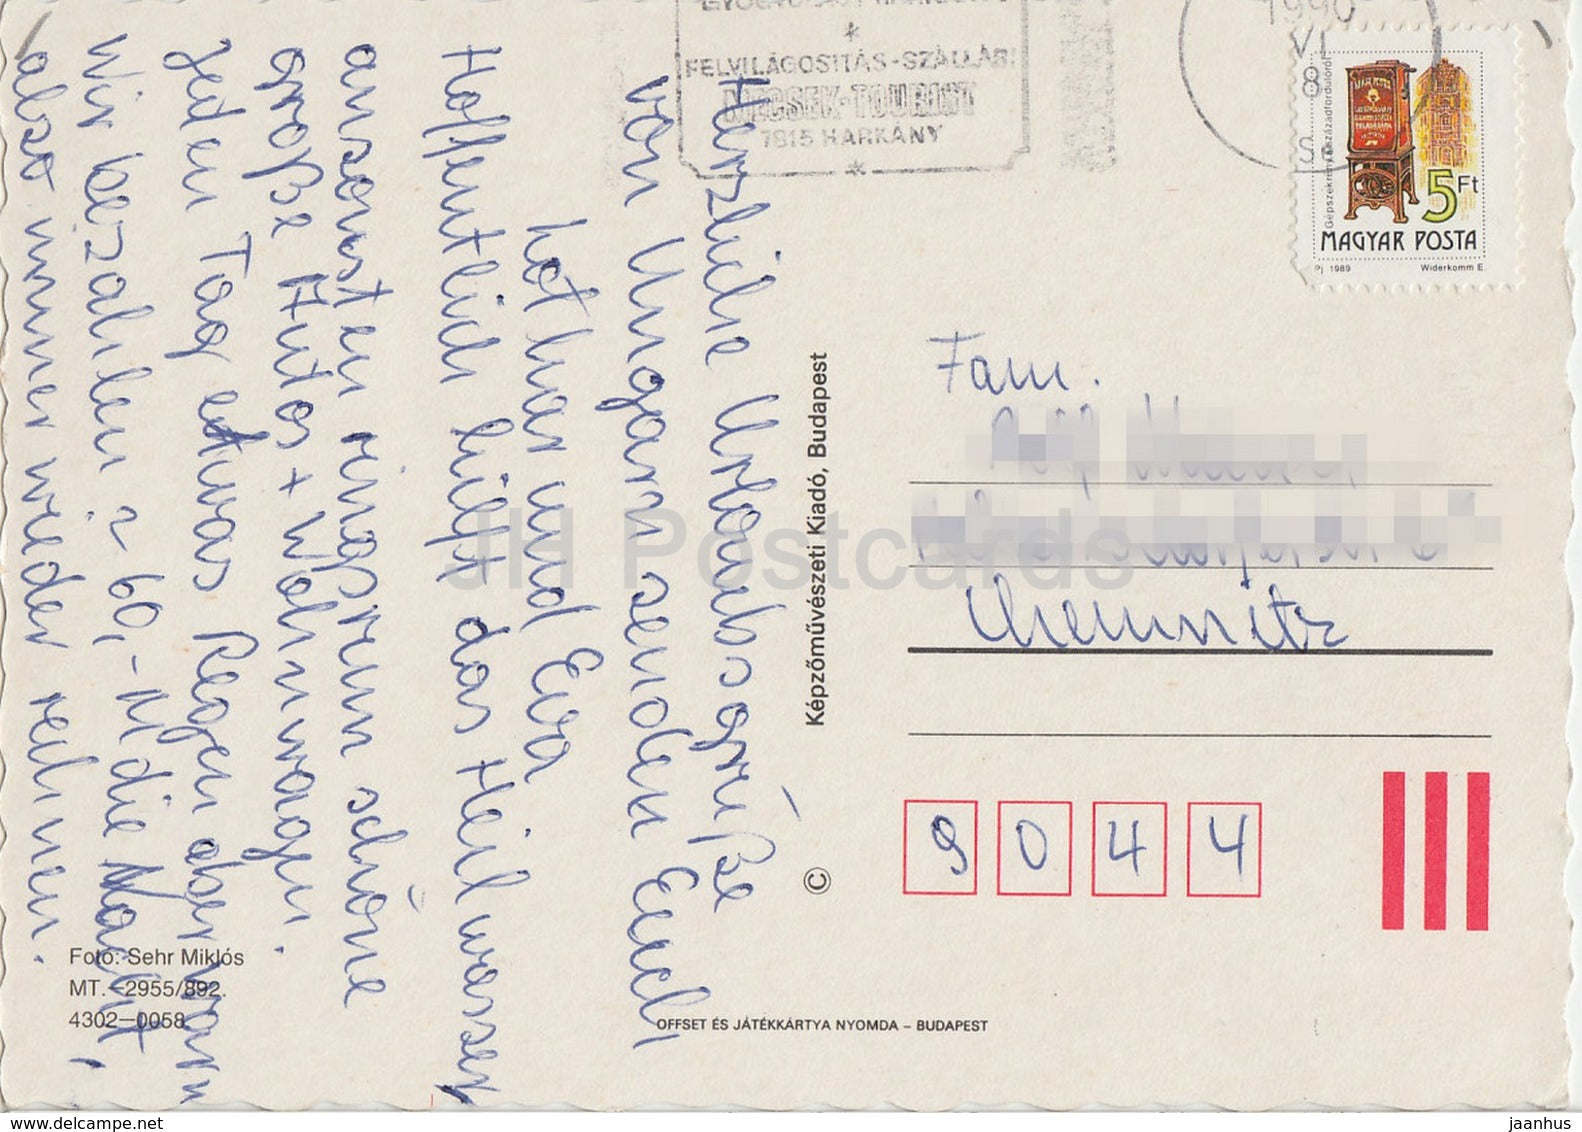 GYÓGYÜRDŐ HARKÁNY
*
FELVILÁGOSITÁS-SZÁLLÁS:
MECSEK-TOURIST
7815 HARKÁNY
*
1990
VI
8
Gépszekrény a századfordulóról
5Ft
MAGYAR POSTA
Pj 1989 Widerkomm E.
Herzliche Urlaubsgrüße
von Ungarn senden Euch,
Lothar und Eva
Hoffentlich hilft das Heilwasser
ansonsten ringsrum schöne
große Autos + Wohnwagen.
Jeden Tag etwas Regen aber warm
Wir bezahlen ~ 60,-M die Nacht,
also immer wieder rechnen.
Képzőművészeti Kiadó, Budapest
©
Fam.
Chemnitz
9044
Fotó: Sehr Miklós
MT.—2955/892.
4302—0058
OFFSET ÉS JÁTÉKKÁRTYA NYOMDA – BUDAPEST
JH Postcards
www.delcampe.net
jaanhus